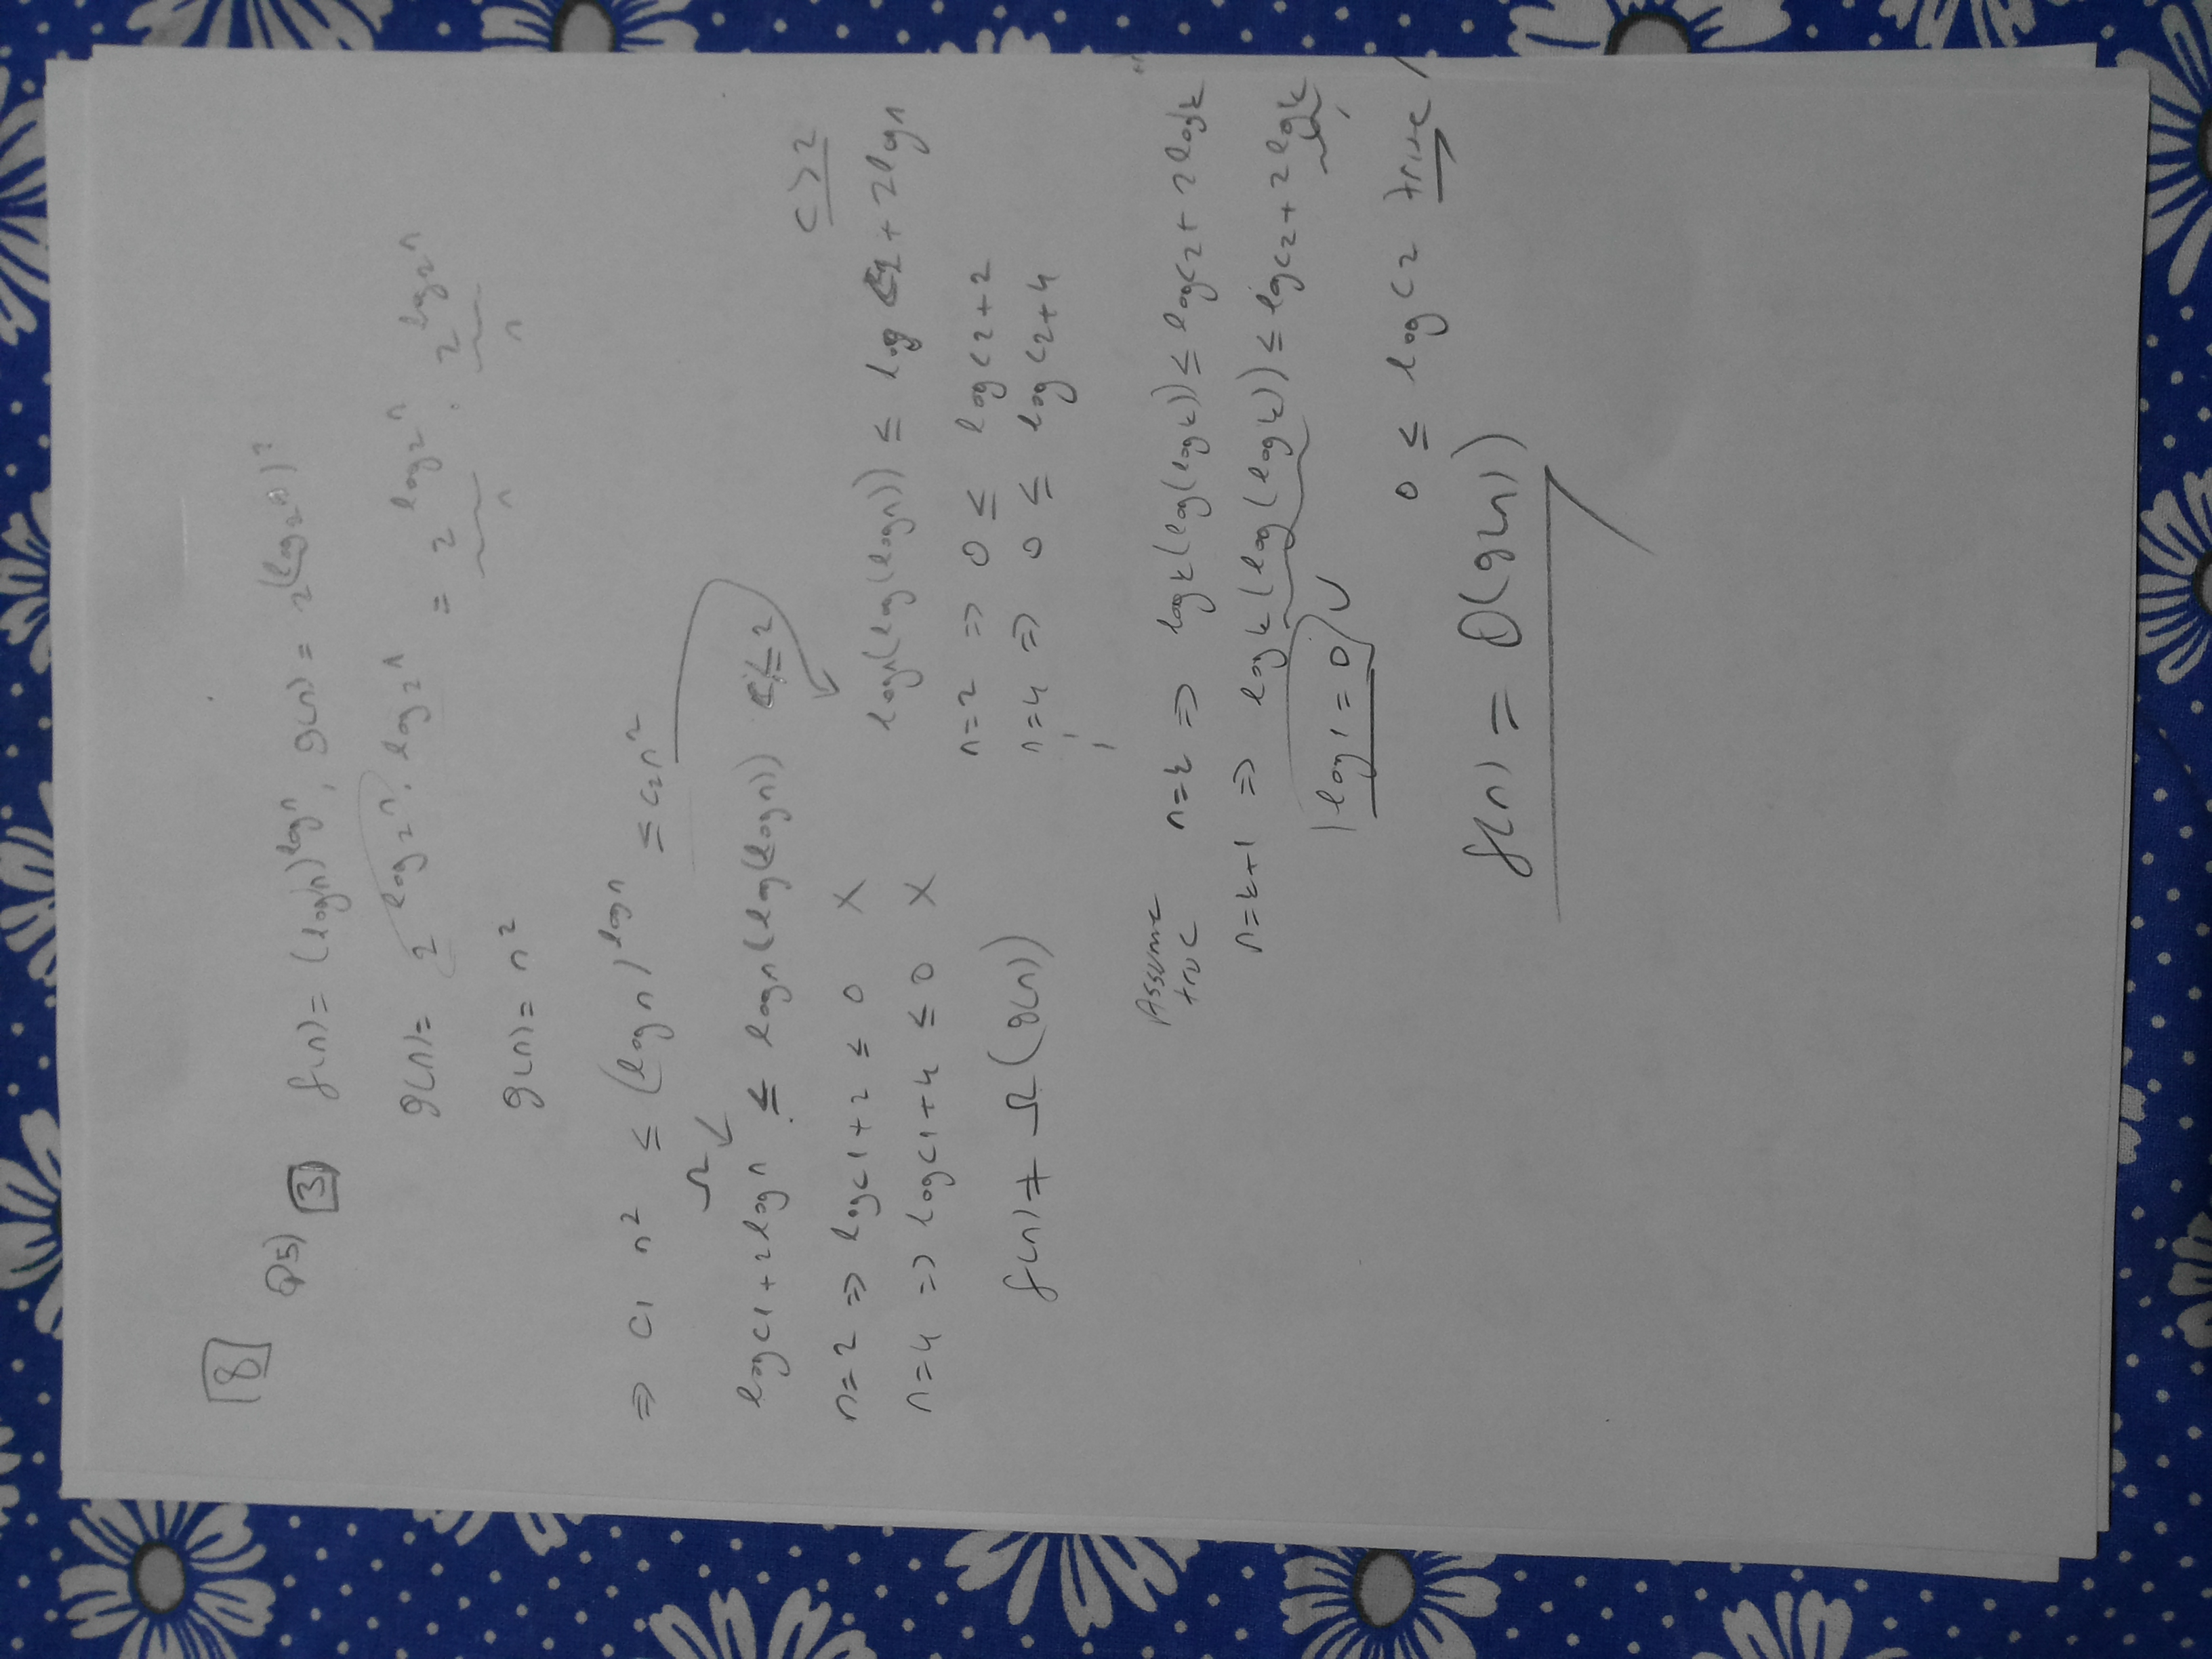 8
Q5) 3 f(n) = (logn)^logn, g(n) = 2^(log₂n)²
g(n) = 2^log₂n · log₂n = 2^log₂n · 2^log₂n
n n
g(n) = n²
⇒ c1 n² ≤ (logn)^logn ≤ c2n²
Ω
logc1 + 2logn ≤ logn(log(logn)) c ≤ 2
c > 2
n=2 ⇒ logc1+2 ≤ 0 X
n=4 ⇒ logc1+4 ≤ 0 X
f(n) ≠ Ω(g(n))
logn(log(logn)) ≤ log c2 + 2logn
n=2 ⇒ 0 ≤ logc2+2
n=4 ⇒ 0 ≤ logc2+4
Assume true n=k ⇒ logk(log(logk)) ≤ logc2 + 2logk
n=k+1 ⇒ logk(log(logk)) ≤ logc2 + 2logk
log1 = 0
0 ≤ logc2 true
f(n) = O(g(n))